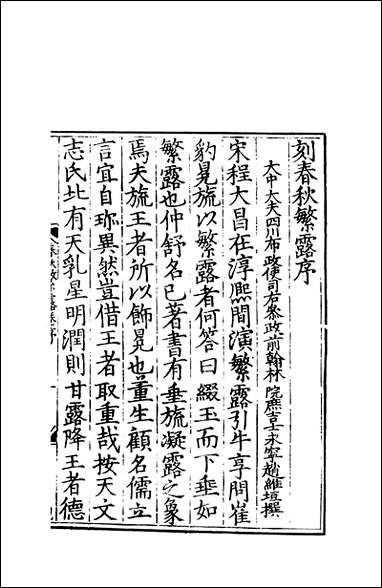 刻春秋繁露序
大中大夫四川布政使司右叅政前翰林院庶吉士永寧趙維垣撰
宋程大昌在淳熙間演繁露引牛亨問崔
豹冕旒以繁露者何答曰綴玉而下垂如
繁露也仲舒名已著書有垂旒凝露之象
焉夫旒王者所以飾冕也董生顧名儒立
言宜自珎異然豈借王者取重哉按天文
志氐北有天乳星明潤則甘露降王者德